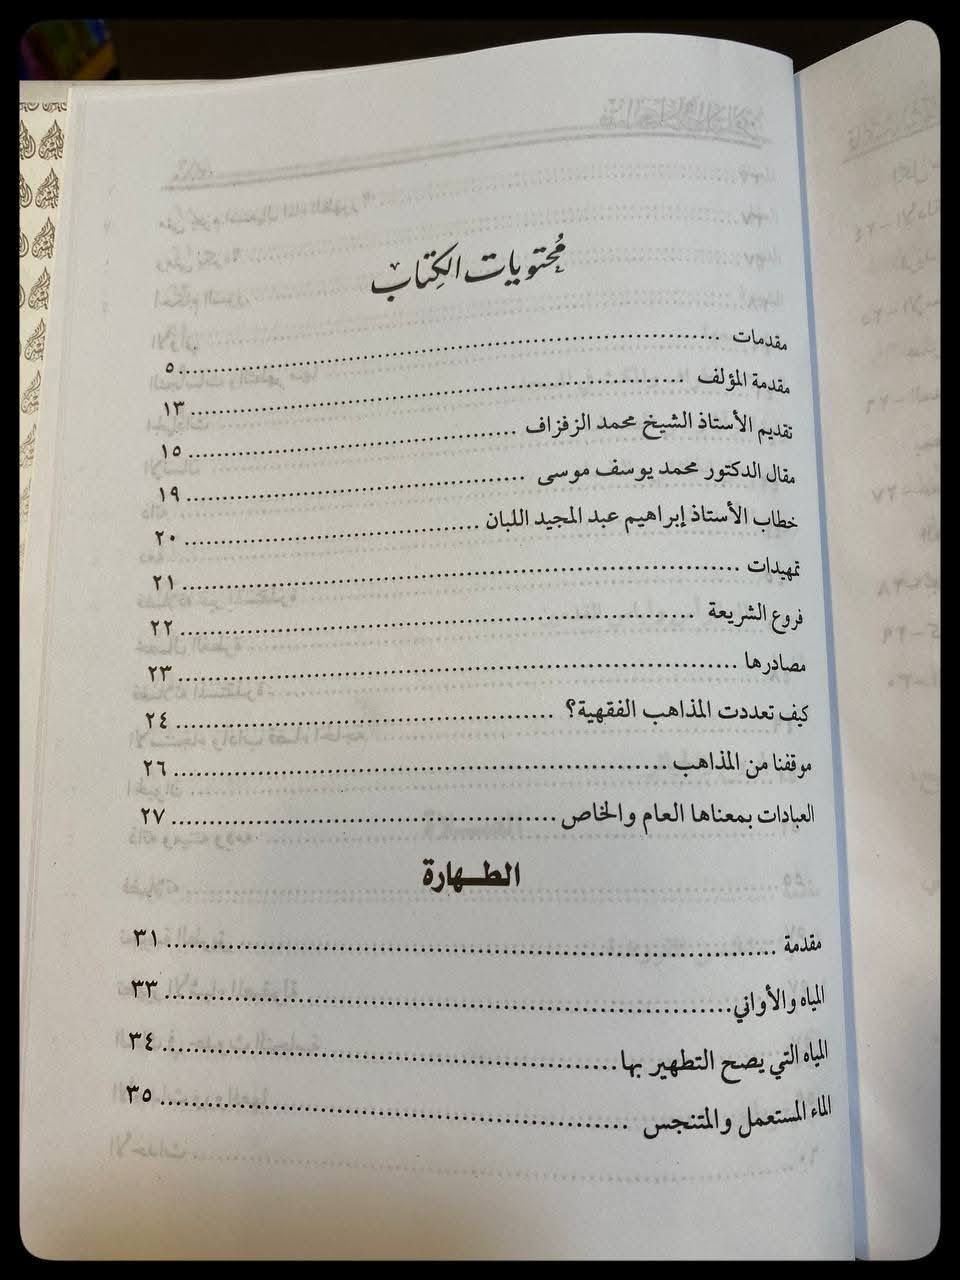 محتويات الكتاب
مقدمات ........................ ٥
مقدمة المؤلف ........................ ١٣
تقديم الأستاذ الشيخ محمد الزفزاف ........................ ١٥
مقال الدكتور محمد يوسف موسى ........................ ١٩
خطاب الأستاذ إبراهيم عبد المجيد اللبان ........................ ٢٠
تمهيدات ........................ ٢١
فروع الشريعة ........................ ٢٢
مصادرها ........................ ٢٣
كيف تعددت المذاهب الفقهية؟ ........................ ٢٤
موقفنا من المذاهب ........................ ٢٦
العبادات بمعناها العام والخاص ........................ ٢٧
الطهارة
مقدمة ........................ ٣١
المياه والأواني ........................ ٣٣
المياه التي يصح التطهير بها ........................ ٣٤
الماء المستعمل والمتنجس ........................ ٣٥